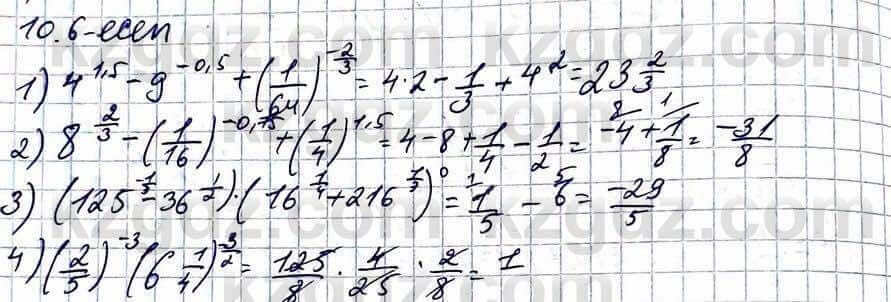 10.6-есеп
1) 4^1,5 - 9^-0,5 + (1/64)^-2/3 = 4·2 - 1/3 + 4^2 = 23 2/3
2) 8^2/3 - (1/16)^-0,75 + (1/4)^1,5 = 4 - 8 + 1/4 · 1/2 = -4 + 1/8 = -31/8
3) (125^-1/3 - 36^1/2) · (16^1/4 + 216^1/3)^0 = 1/5 - 6 = -29/5
4) (2/5)^-3 (6 1/4)^-3/2 = 125/8 · 4/25 · 2/8 = 1